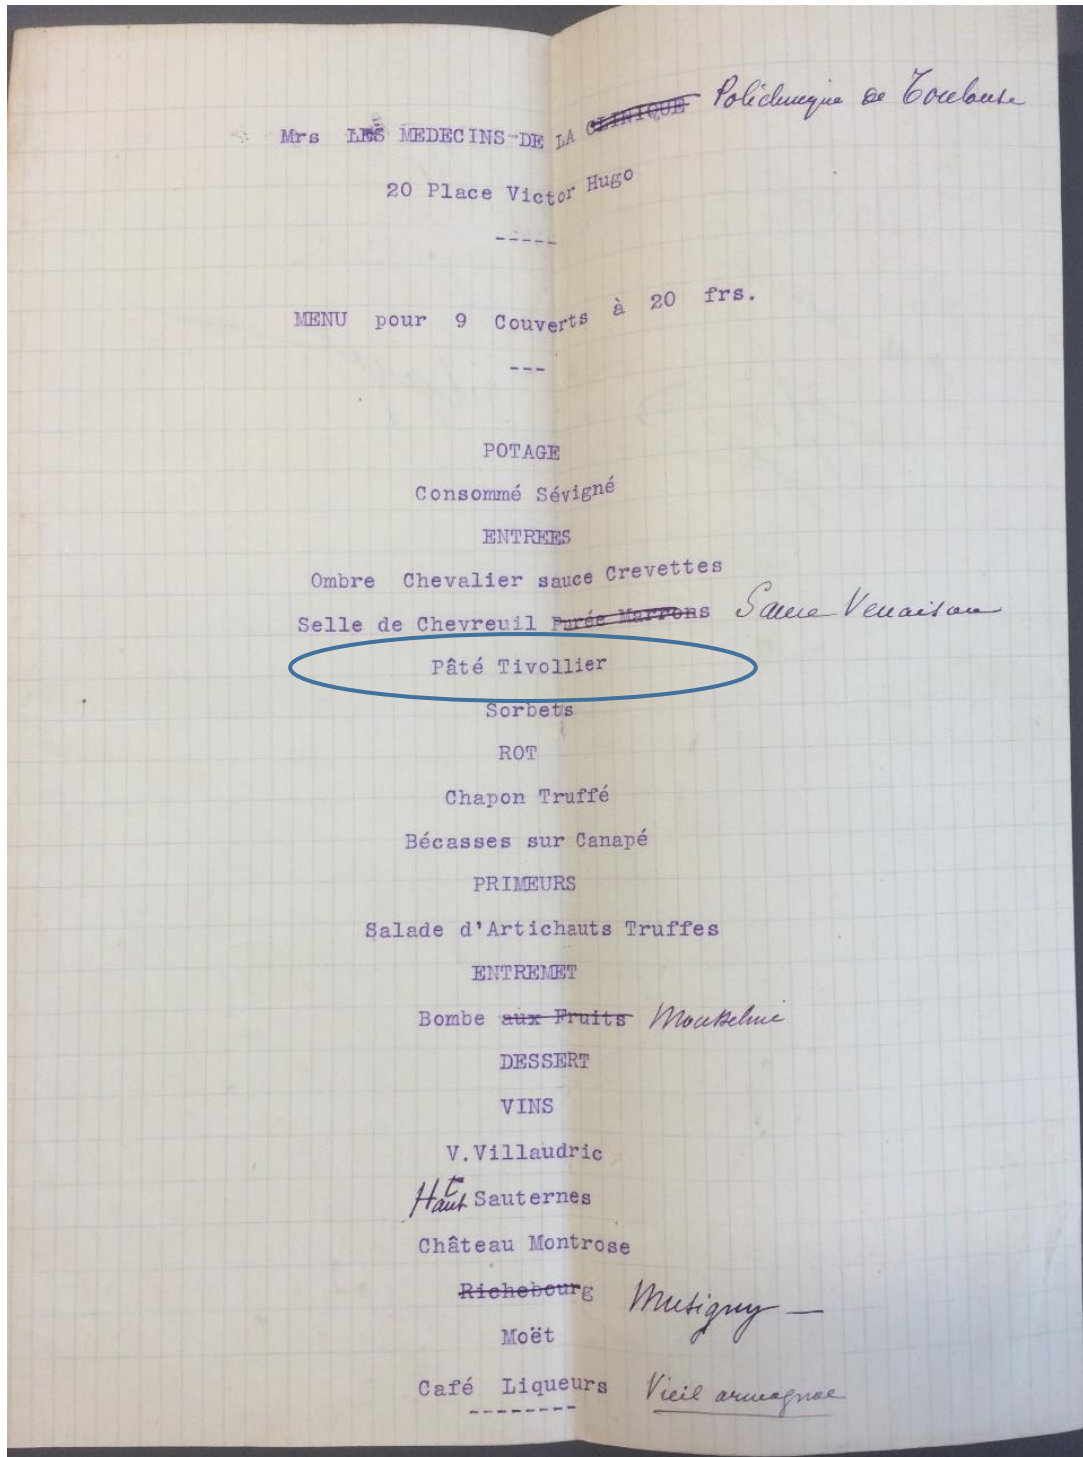 Mrs LES MEDECINS DE LA CLINIQUE Policlinique de Toulouse
20 Place Victor Hugo
-----
MENU pour 9 Couverts à 20 frs.
---
POTAGE
Consommé Sévigné
ENTREES
Ombre Chevalier sauce Crevettes
Selle de Chevreuil Purée Marrons Sauce Venaison
Pâté Tivollier
Sorbets
ROT
Chapon Truffé
Bécasses sur Canapé
PRIMEURS
Salade d'Artichauts Truffes
ENTREMET
Bombe aux Fruits Mousseline
DESSERT
VINS
V.Villaudric
Haut Sauternes
Château Montrose
Richebourg Musigny —
Moët
Café Liqueurs Vieil armagnac
--------